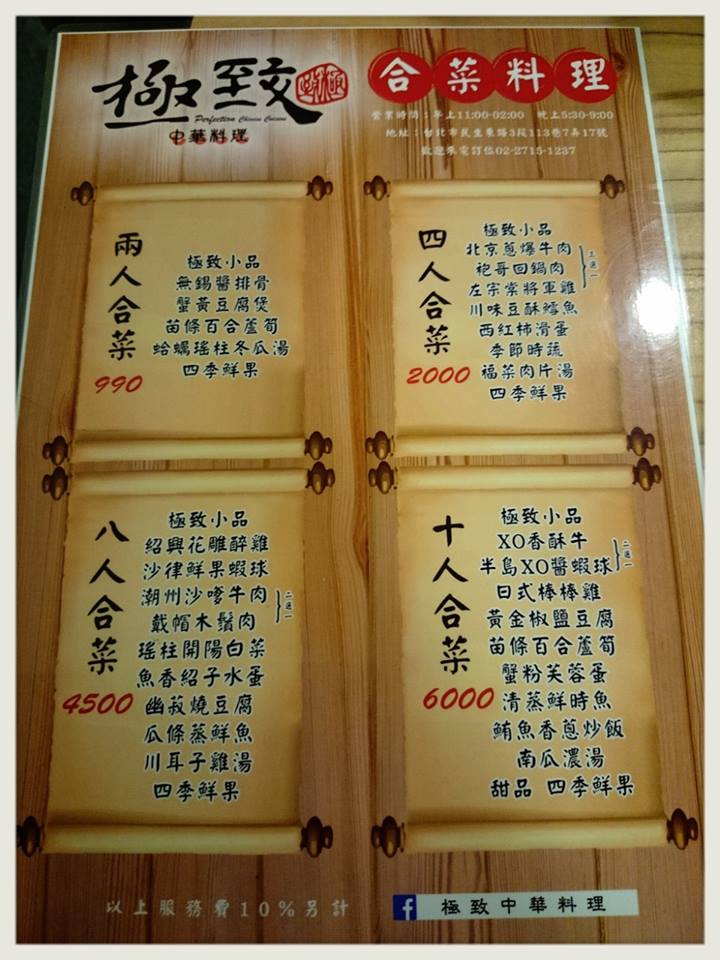 極致
極致
Perfection Chinese Cuisine
中華料理
合菜料理
營業時間：早上11:00-02:00 晚上5:30-9:00
地址：台北市民生東路3段113巷7弄17號
歡迎來電訂位02-2715-1237
兩人合菜
990
極致小品
無錫醬排骨
蟹黃豆腐煲
苗條百合蘆筍
蛤蠣瑤柱冬瓜湯
四季鮮果
四人合菜
2000
極致小品
北京蔥爆牛肉
袍哥回鍋肉
左宗棠將軍雞
三選一
川味豆酥鱈魚
西紅柿滑蛋
季節時蔬
福菜肉片湯
四季鮮果
八人合菜
4500
極致小品
紹興花雕醉雞
沙律鮮果蝦球
潮州沙嗲牛肉
戴帽木鬚肉
二選一
瑤柱開陽白菜
魚香紹子水蛋
幽菽燒豆腐
瓜條蒸鮮魚
川耳子雞湯
四季鮮果
十人合菜
6000
極致小品
XO香酥牛
半島XO醬蝦球
二選一
日式棒棒雞
黃金椒鹽豆腐
苗條百合蘆筍
蟹粉芙蓉蛋
清蒸鮮時魚
鮪魚香蔥炒飯
南瓜濃湯
甜品 四季鮮果
以上服務費10%另計
f 極致中華料理